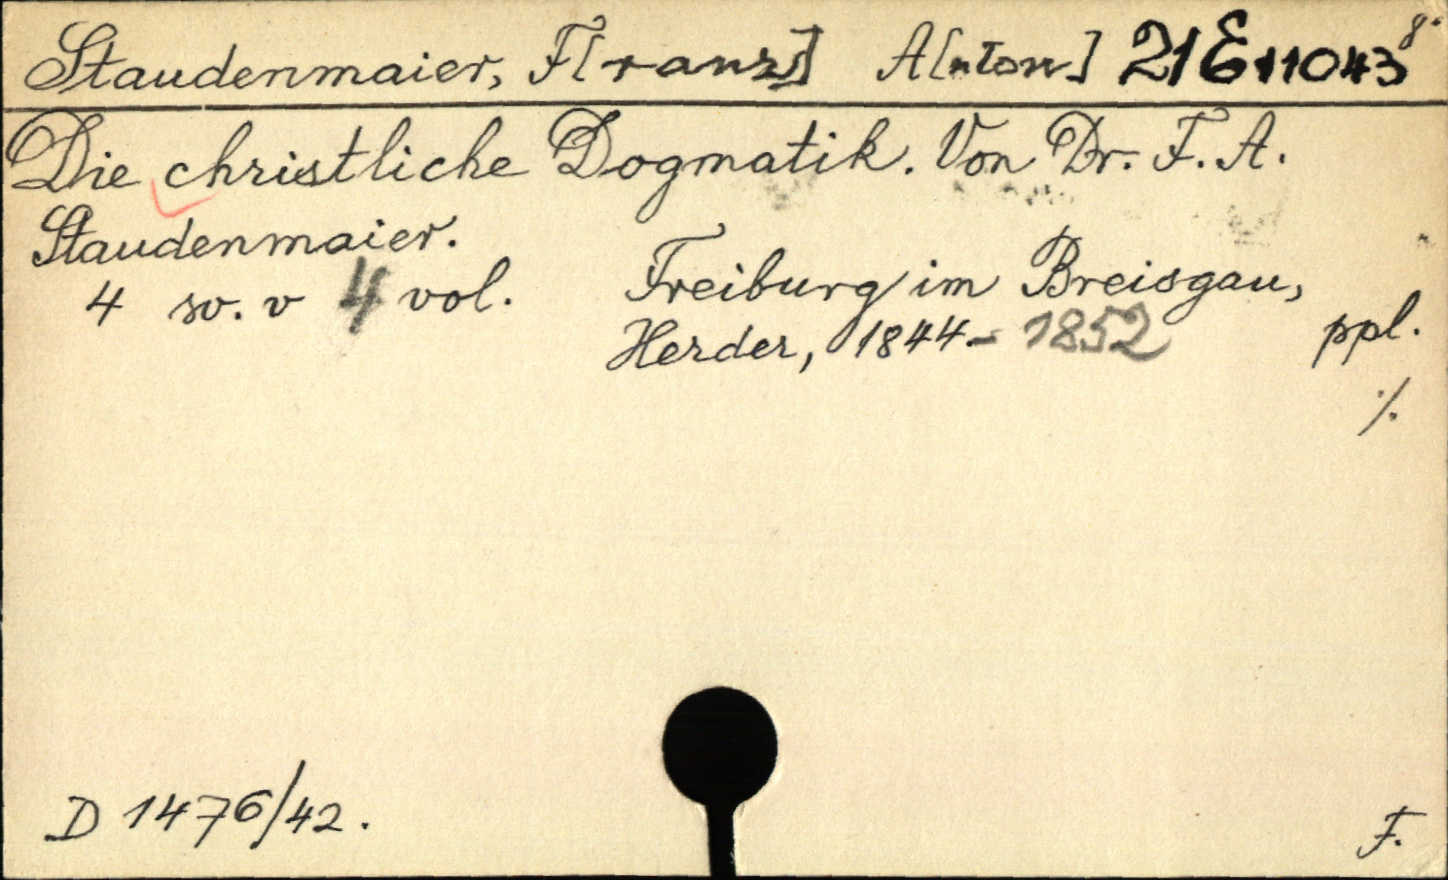 Staudenmaier, F[ranz] A[nton] 21 E 11043 8°
Die christliche Dogmatik. Von Dr. F. A.
Staudenmaier.
4 sv. v 4 vol. Freiburg im Breisgau,
Herder, 1844-1852 ppl.
%
D 1476/42. F.